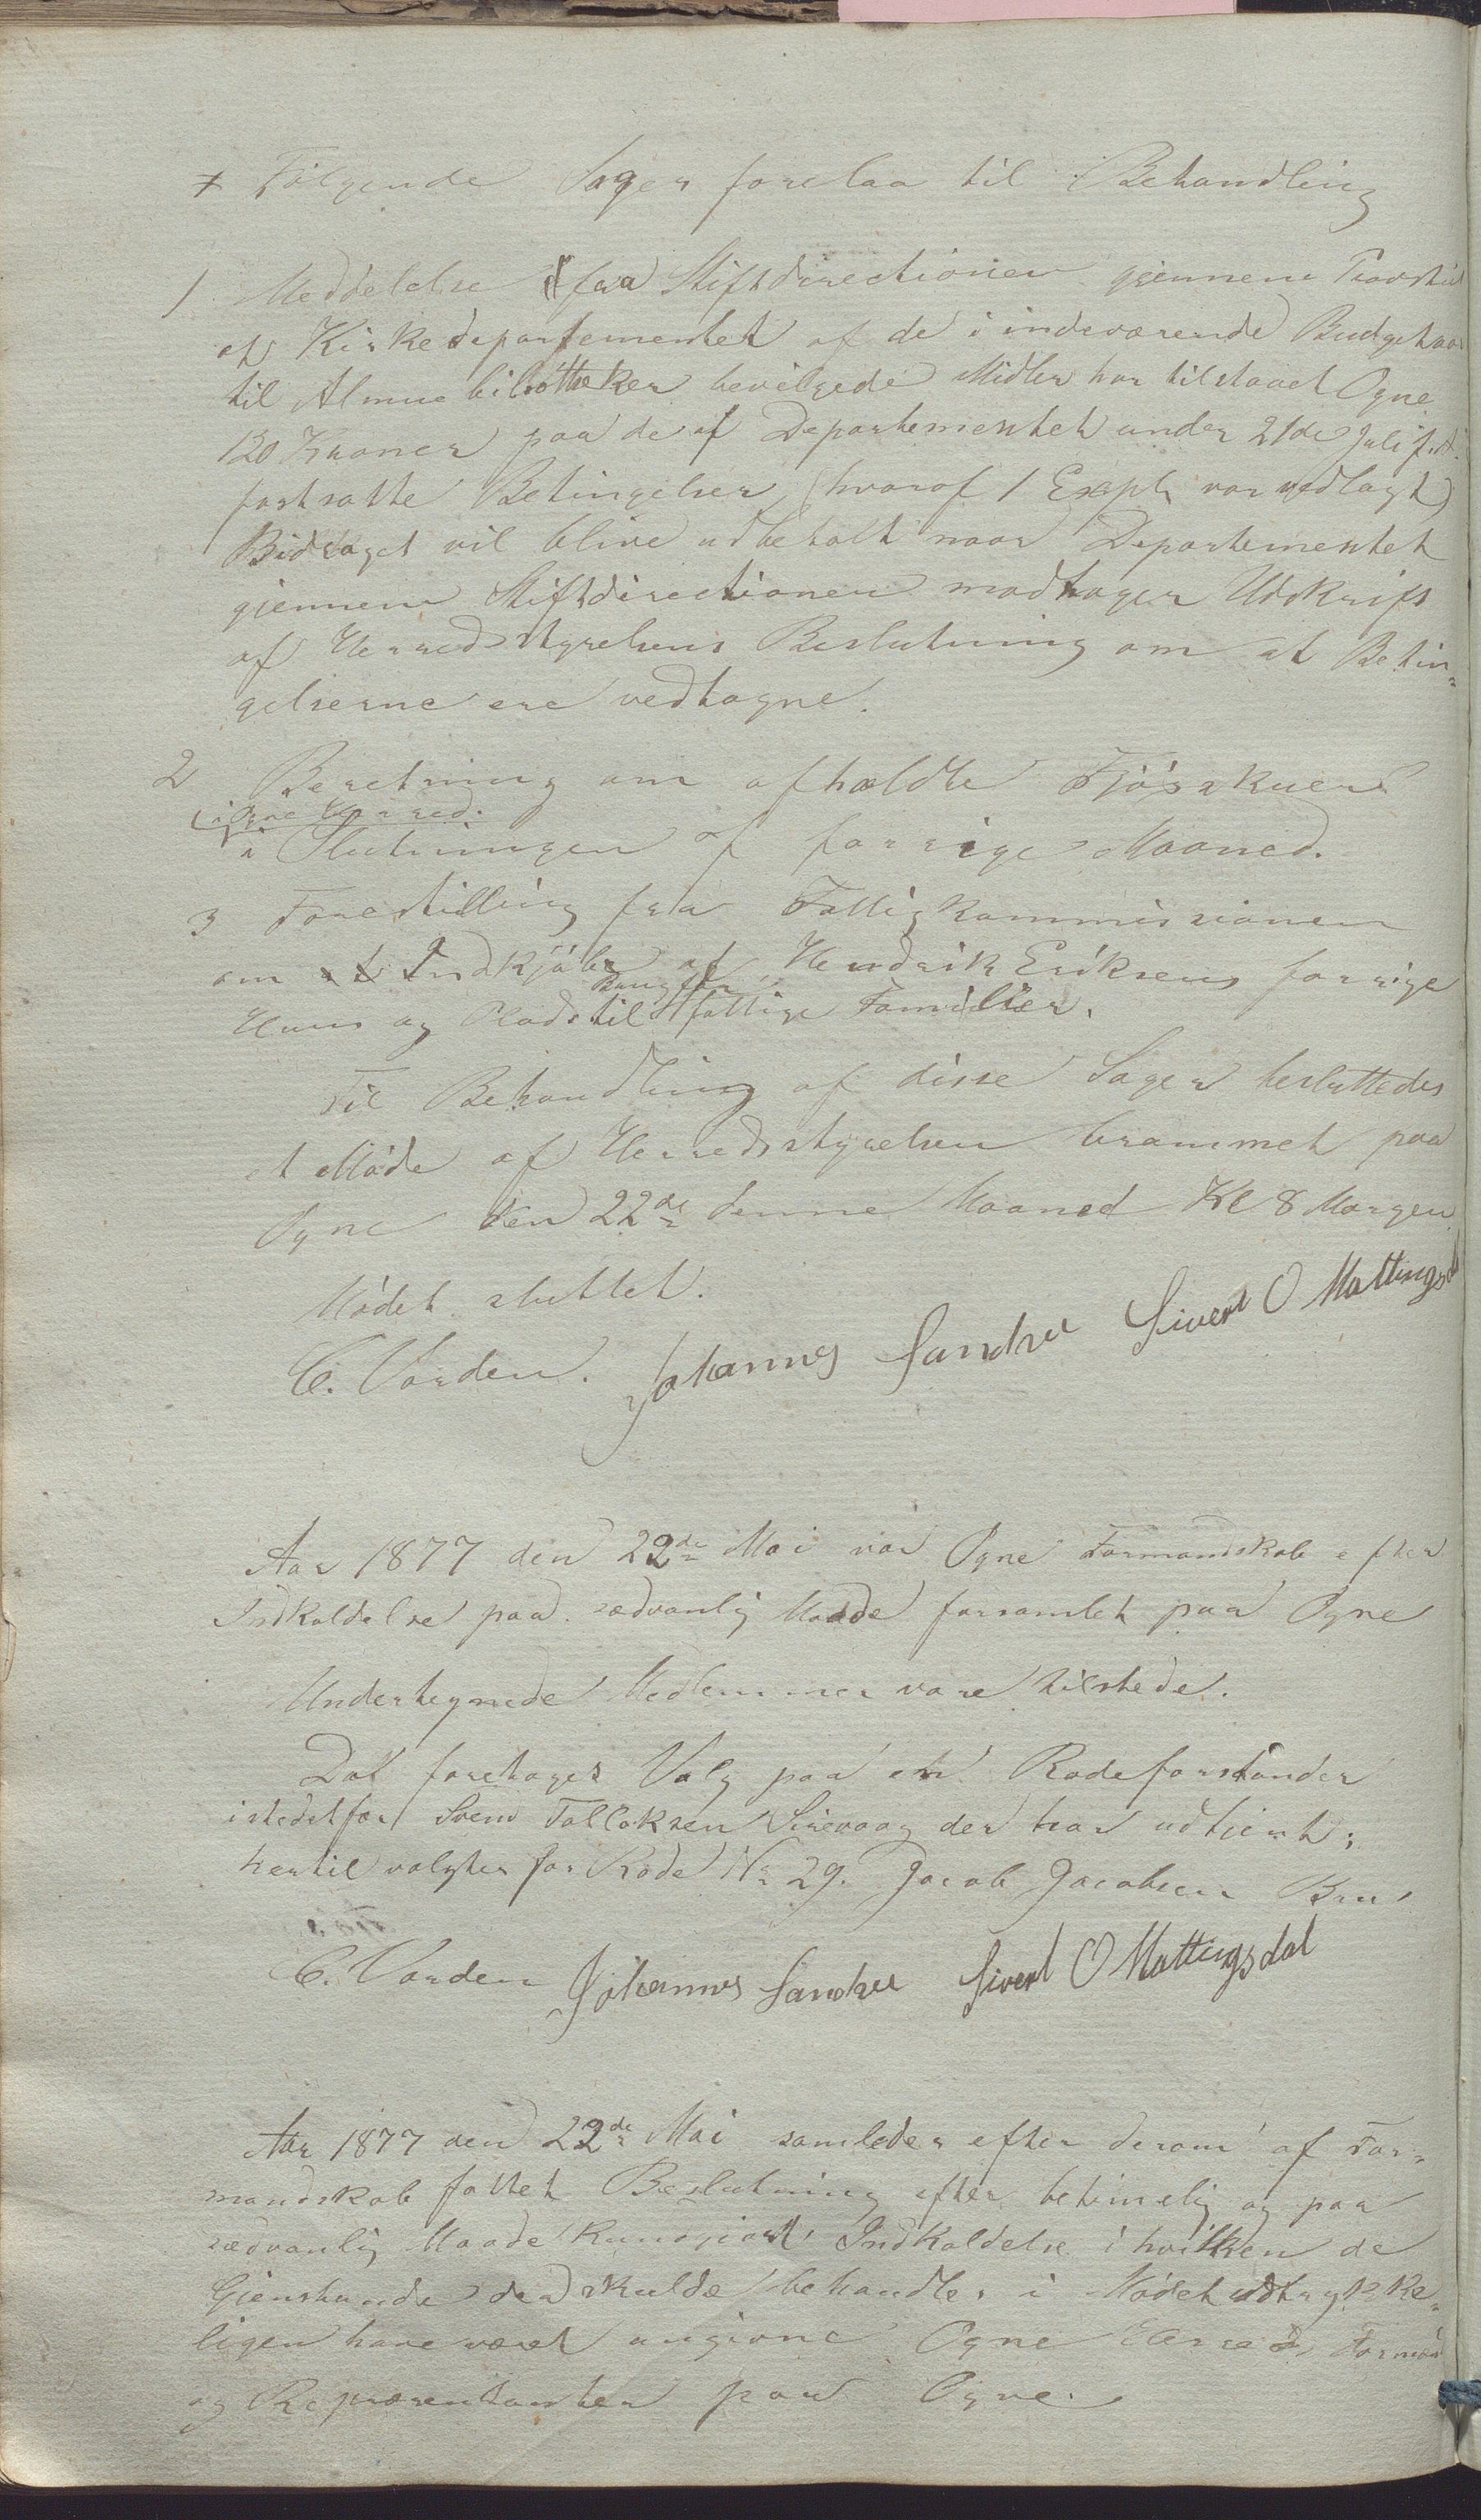 + Følgende Sager forelaa til Behandling
1 Meddelelse fra Stiftdirectionen gjennem Provsten
at Kirkedepartementet af de i indeværende Budgetaar
til Almuebibliotheker bevilgede Midler har tilstaaet Ogne
120 Kroner paa de af Departementet under 21de Juli f. A.
fastsatte Betingelser, (hvoraf 1 Expl. var vedlagt)
Bidraget vil blive udbetalt naar Departementet
gjennem Stiftdirectionen modtager Udskrift
af Herredsstyrelsens Beslutning om at Betin-
gelserne ere vedtagne.
2 Beretning om afholdte Fjósskuer
i Ogne Herred.
i Slutningen af forrige Maaned.
3 Forestilling fra Fattigkommissionen
om Indkjøb af Hendrik Eriksens forrige
Huus og Plads til fattige Familier.
Til Behandling af disse Sager besluttedes
et Móde af Herredsstyrelsen berammet paa
Ogne den 22de denne Maaned Kl 8 Morgen
Módet sluttet.
C. Varden. Johannes Sandve Sivert O Mattingsdal
Aar 1877 den 22de Mai var Ogne Formandskab efter
Indkaldelse paa sædvanlig Maade forsamlet paa Ogne
Undertegnede Medlemmer vare tilstede.
Dat foretoges Valg paa en Rodeforstander
istedetfor Svend Tollaksen Sirevaag der har udtjent;
hertil valgtes for Rode No 29. Jacob Jacobsen Bru.
C. Varden Johannes Sandve Sivert O Mattingsdal
Aar 1877 den 22de Mai samledes efter derom af For-
mandskab fattet Beslutning efter betimelig og paa
sædvanlig Maade kundgjort Indkaldelse i hvilken de
Gjenstande der skulde behandles i Módet udtrykke-
ligen have været angivne Ogne Herreds Formænd
og Repræsentanter paa Ogne.